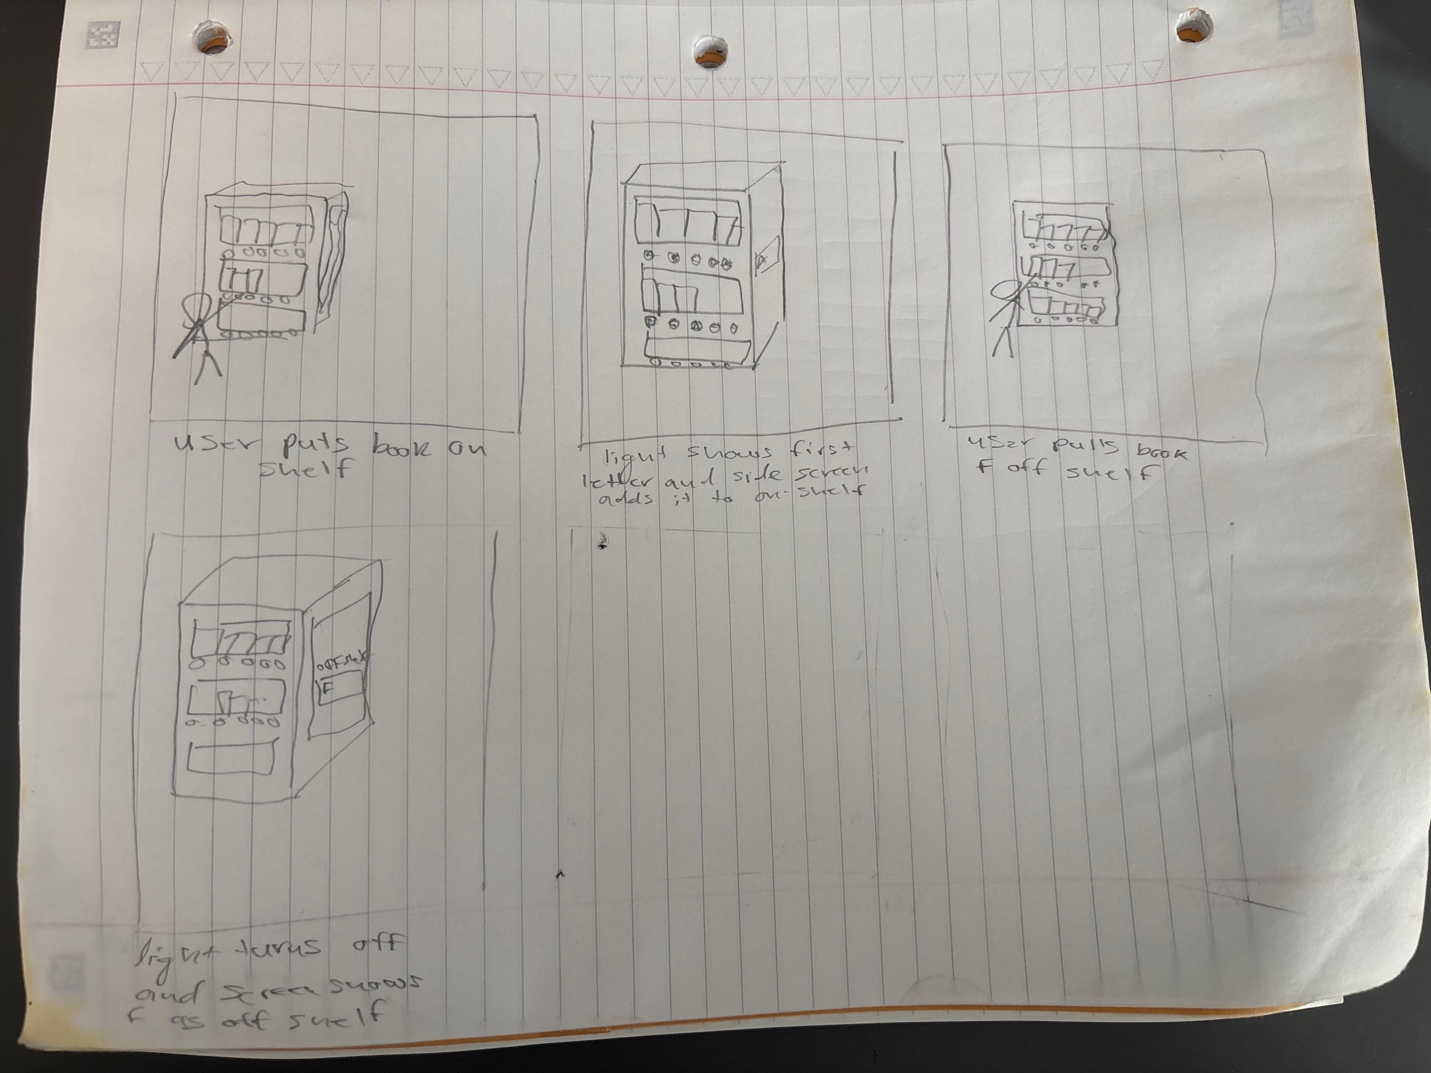 user puts book on
shelf
light shows first
letter and side screen
adds it to on-shelf
user pulls book
F off shelf
off shelf
F
light turns off
and screen shows
F as off shelf